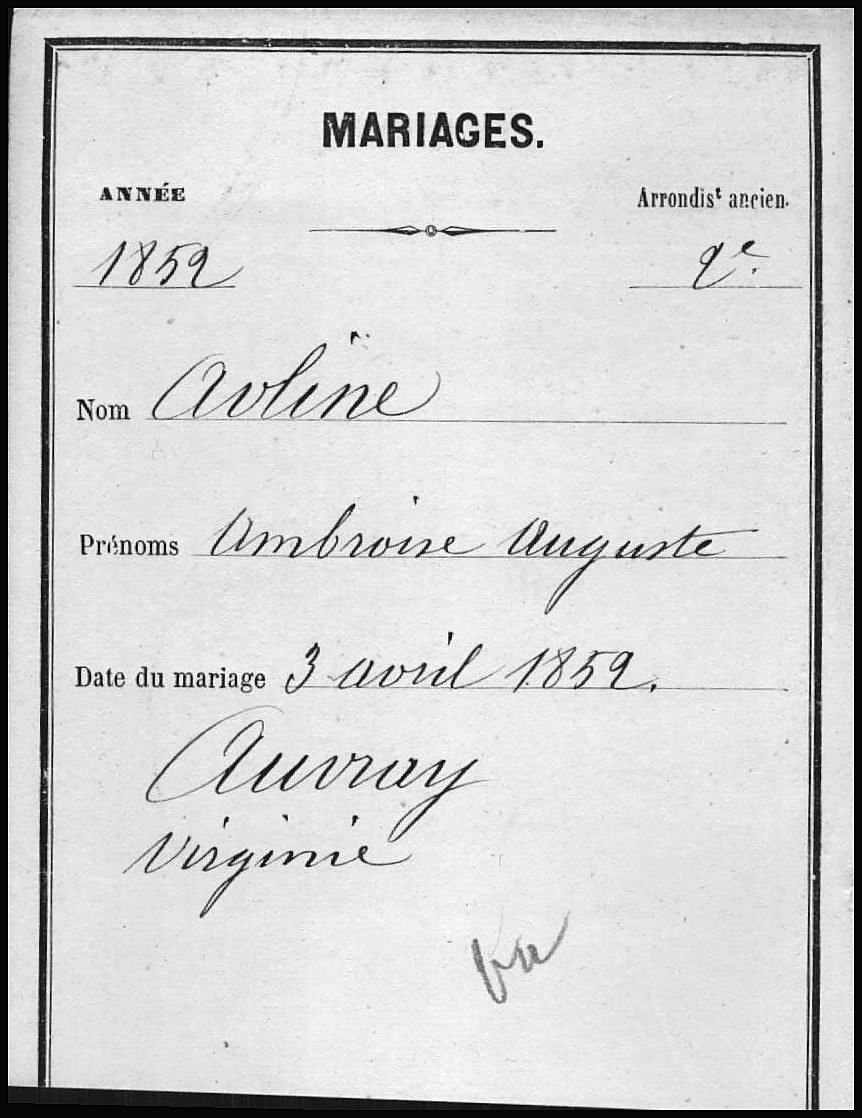 MARIAGES.
ANNÉE Arrondisᵗ ancien.
1852 2e.
Nom Avline
Prénoms Ambroise Auguste
Date du mariage 3 avril 1852.
Auvray
Virginie
vu